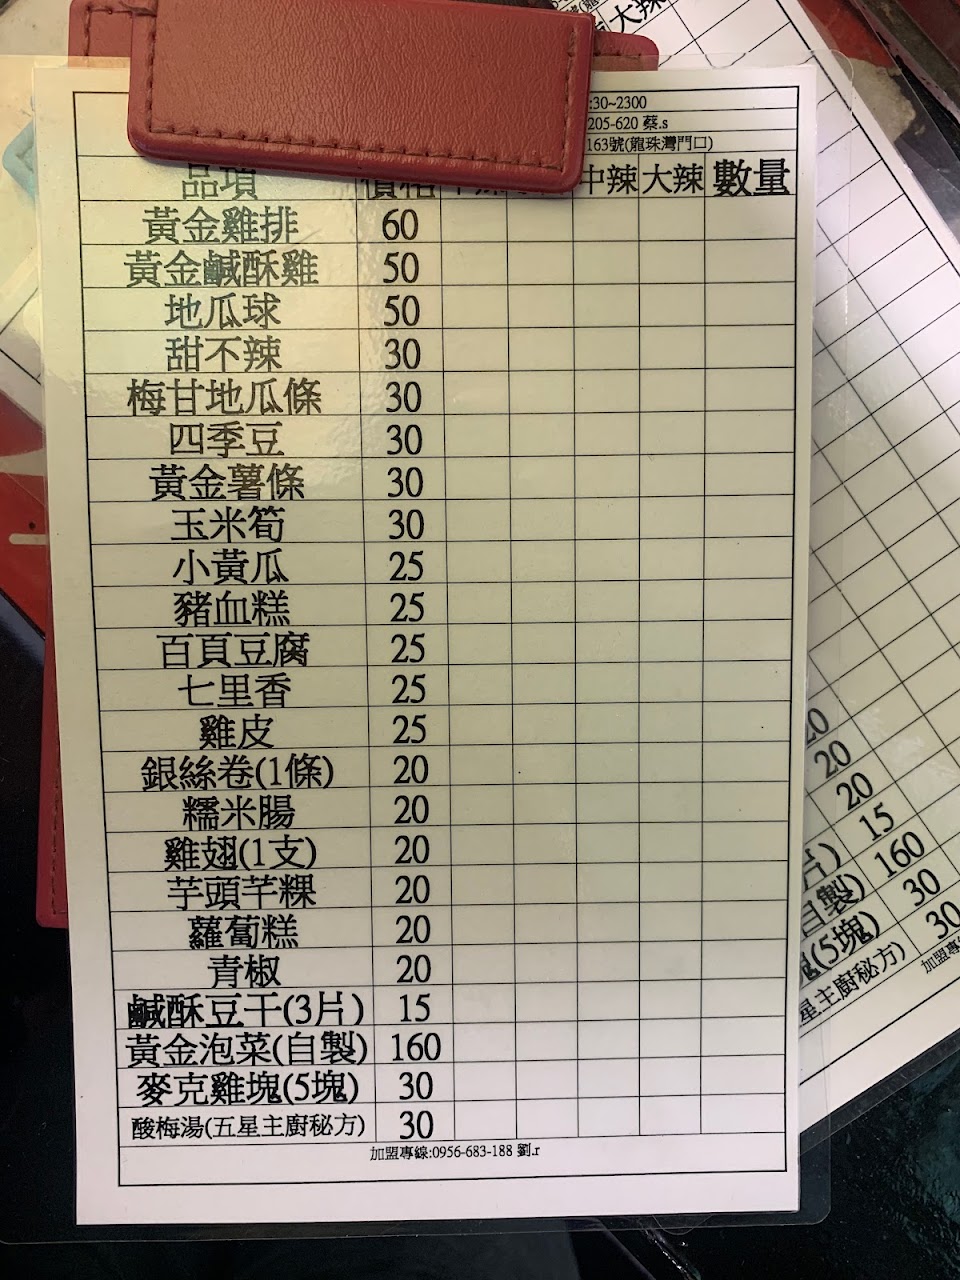 :30~2300
205-620 蔡.s
163號(龍珠灣門口)
品項 價格 中辣 大辣 數量
黃金雞排 60
黃金鹹酥雞 50
地瓜球 50
甜不辣 30
梅甘地瓜條 30
四季豆 30
黃金薯條 30
玉米筍 30
小黃瓜 25
豬血糕 25
百頁豆腐 25
七里香 25
雞皮 25
銀絲卷(1條) 20
糯米腸 20
雞翅(1支) 20
芋頭芊粿 20
蘿蔔糕 20
青椒 20
鹹酥豆干(3片) 15
黃金泡菜(自製) 160
麥克雞塊(5塊) 30
酸梅湯(五星主廚秘方) 30
加盟專線:0956-683-188 劉.r
大辣
20
20
20
片) 15
自製) 160
塊(5塊) 30
星主廚秘方) 30
加盟專